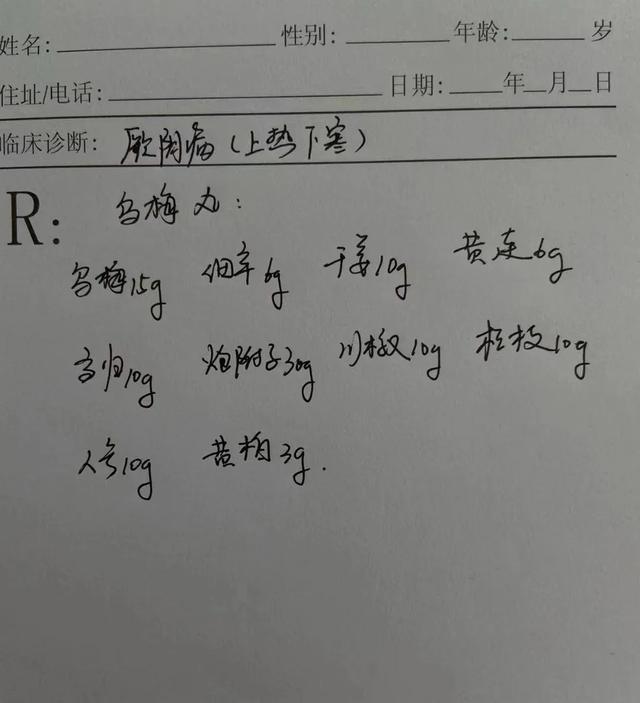 姓名: 性别: 年龄: 岁
住址/电话: 日期: 年 月 日
临床诊断: 厥阴病（上热下寒）
R: 乌梅丸:
乌梅15g 细辛6g 干姜10g 黄连6g
当归10g 炮附子30g 川椒10g 桂枝10g
人参10g 黄柏3g.